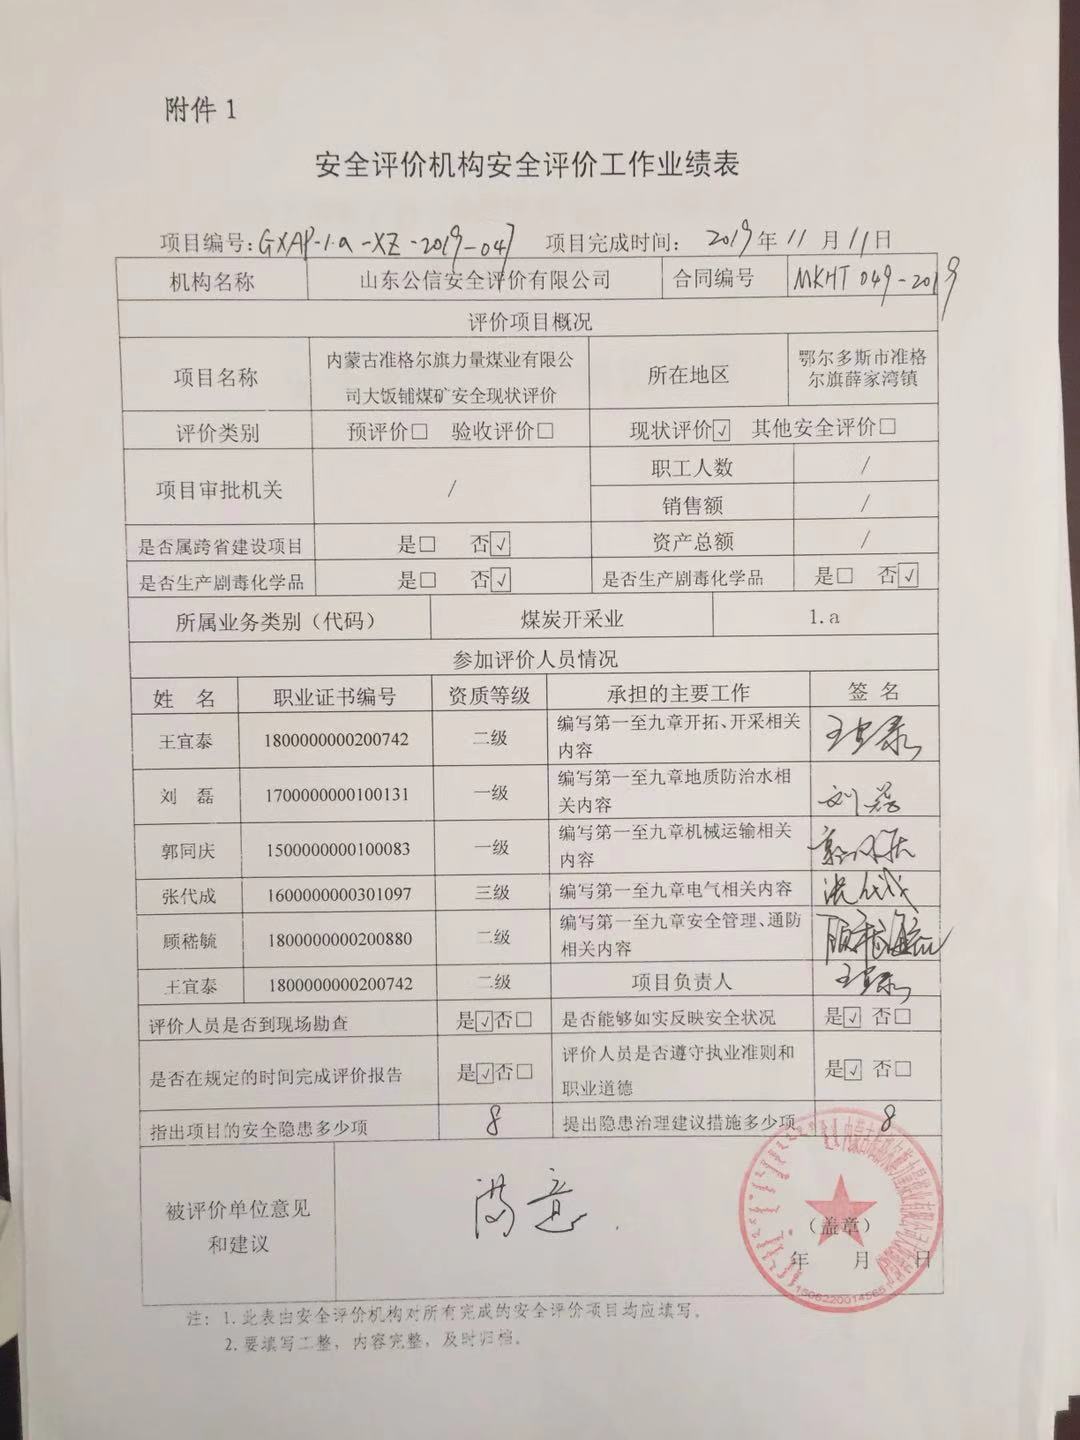 附件 1
安全评价机构安全评价工作业绩表
项目编号: GXAP-1.a-XZ-2019-047 项目完成时间: 2019年11月11日
机构名称 山东公信安全评价有限公司 合同编号 MKHT 049-2019
评价项目概况
项目名称 内蒙古准格尔旗力量煤业有限公 所在地区 鄂尔多斯市准格
司大饭铺煤矿安全现状评价 尔旗薛家湾镇
评价类别 预评价□ 验收评价□ 现状评价☑ 其他安全评价□
项目审批机关 / 职工人数 /
销售额 /
是否属跨省建设项目 是□ 否☑ 资产总额 /
是否生产剧毒化学品 是□ 否☑ 是否生产剧毒化学品 是□ 否☑
所属业务类别（代码） 煤炭开采业 1.a
参加评价人员情况
姓 名 职业证书编号 资质等级 承担的主要工作 签 名
王宜泰 1800000000200742 二级 编写第一至九章开拓、开采相关 王宜泰
内容
刘 磊 1700000000100131 一级 编写第一至九章地质防治水相 刘磊
关内容
郭同庆 1500000000100083 一级 编写第一至九章机械运输相关 郭同庆
内容
张代成 1600000000301097 三级 编写第一至九章电气相关内容 张代成
顾嵇毓 1800000000200880 二级 编写第一至九章安全管理、通防
相关内容
王宜泰 1800000000200742 二级 项目负责人 王宜泰
评价人员是否到现场勘查 是☑否□ 是否能够如实反映安全状况 是☑ 否□
是否在规定的时间完成评价报告 是☑否□ 评价人员是否遵守执业准则和 是☑ 否□
职业道德
指出项目的安全隐患多少项 8 提出隐患治理建议措施多少项 8
被评价单位意见 满意
和建议
（盖章）
年 月 日
1506220014565
注：1.此表由安全评价机构对所有完成的安全评价项目均应填写。
2.要填写工整，内容完整，及时归档。